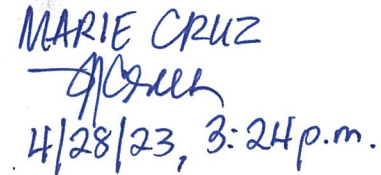 MARIE CRUZ
4/28/23, 3:24 p.m.